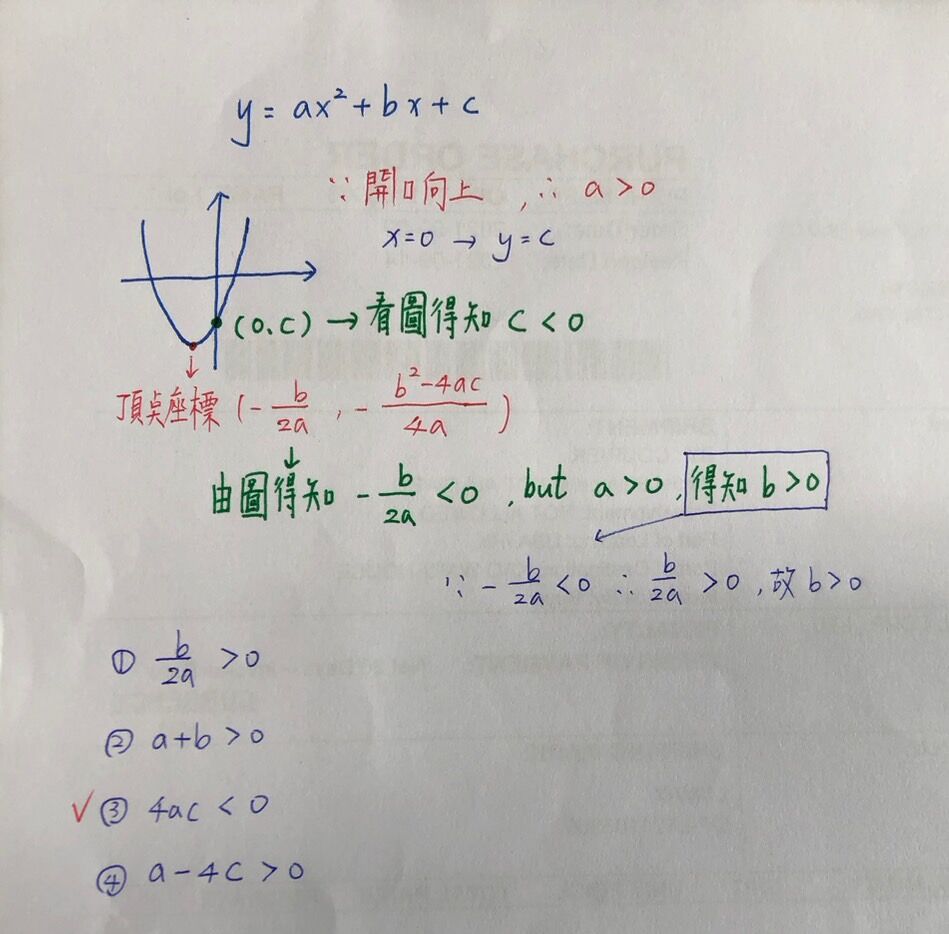 y = ax² + bx + c
∵ 開口向上 , ∴ a > 0
x=0 → y = c
(0.c) → 看圖得知 c < 0
↓
頂点座標 (- b/2a , - b²-4ac/4a )
↓
由圖得知 - b/2a < 0 , but a > 0 , 得知 b > 0
∵ - b/2a < 0 ∴ b/2a > 0 , 故 b > 0
① b/2a > 0
② a+b > 0
✓ ③ 4ac < 0
④ a - 4c > 0